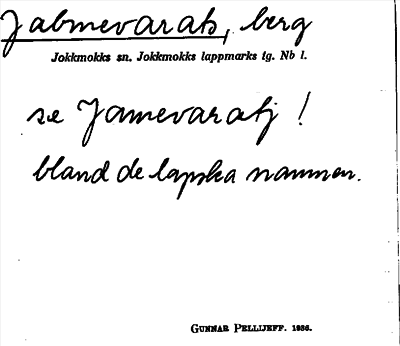 Jabmevarats, berg
Jokkmokks sn. Jokkmokks lappmarks tg. Nb l.
se Jamevaratj!
bland de lapska namnen.
GUNNAR PELLIJEFF. 1936.